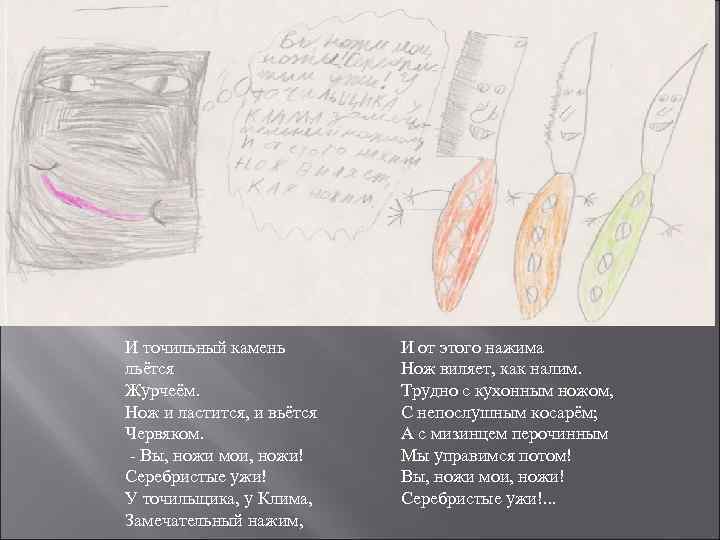 Вы, ножи мои,
ножи! Серебрис-
тые ужи! У
точильщика у
КЛИМА замеча-
тельный нажим,
И от этого нажим
Нож виляет,
как налим.
И точильный камень
льётся
Журчеём.
Нож и ластится, и вьётся
Червяком.
- Вы, ножи мои, ножи!
Серебристые ужи!
У точильщика, у Клима,
Замечательный нажим,
И от этого нажима
Нож виляет, как налим.
Трудно с кухонным ножом,
С непослушным косарём;
А с мизинцем перочинным
Мы управимся потом!
Вы, ножи мои, ножи!
Серебристые ужи!...